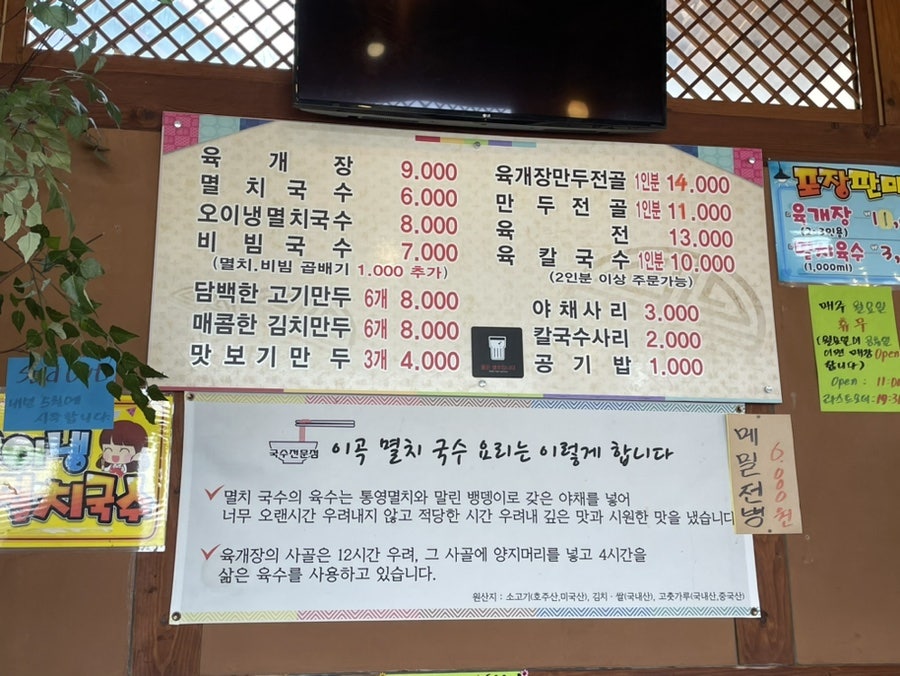 육개장 9.000
멸치국수 6.000
오이냉멸치국수 8.000
비빔국수 7.000
(멸치.비빔 곱배기 1.000 추가)
담백한 고기만두 6개 8.000
매콤한 김치만두 6개 8.000
맛보기만두 3개 4.000
육개장만두전골 1인분 14.000
만두전골 1인분 11.000
육전 13.000
육칼국수 1인분 10.000
(2인분 이상 주문가능)
야채사리 3.000
칼국수사리 2.000
공기밥 1.000
국수전문점
이곡 멸치 국수 요리는 이렇게 합니다
멸치 국수의 육수는 통영멸치와 말린 뱅뎅이로 갖은 야채를 넣어
너무 오랜시간 우려내지 않고 적당한 시간 우려내 깊은 맛과 시원한 맛을 냈습니다
육개장의 사골은 12시간 우려, 그 사골에 양지머리를 넣고 4시간을
삶은 육수를 사용하고 있습니다.
원산지 : 소고기(호주산,미국산), 김치 · 쌀(국내산), 고춧가루(국내산,중국산)
메밀전병. 6000원
포장판매
육개장
(2~3인용)
멸치육수 3,
(1,000ml)
매주 월요일
휴무
(월요일이 공휴일
이면 매장 Open
합니다)
Open : 11:0
라스트오더: 19:3
Sold Out
시작합니다.
이냉
멸치국수